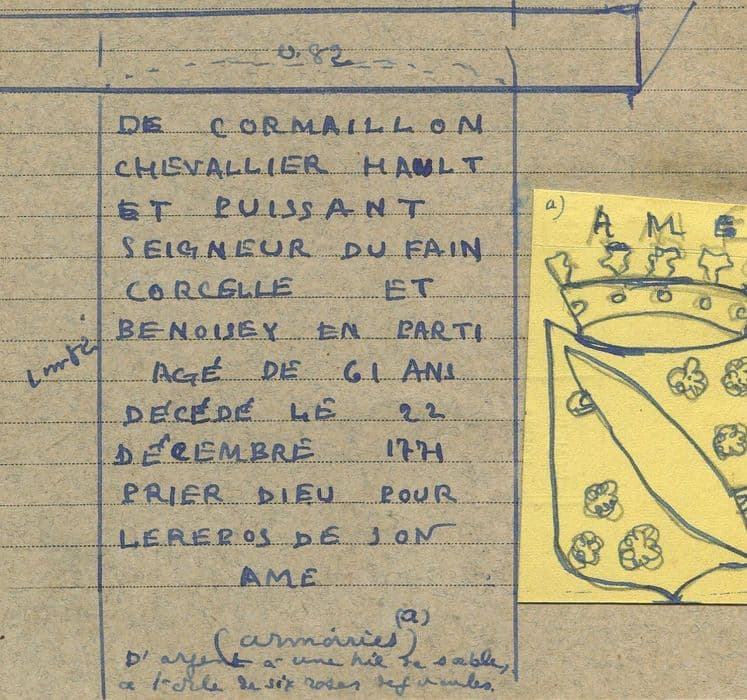 0.82
DE CORMAILLON
CHEVALLIER HAULT
ET PUISSANT
SEIGNEUR DU FAIN
CORCELLE ET
BENOISEY EN PARTI
AGÉ DE 61 ANS
DÉCÉDÉ LE 22
DÉCEMBRE 1771
PRIER DIEU POUR
LEREPOS DE SON
AME
(a)
(armoiries)
D'argent à une de sable,
à l'orle de six roses de gueules.
a) AME